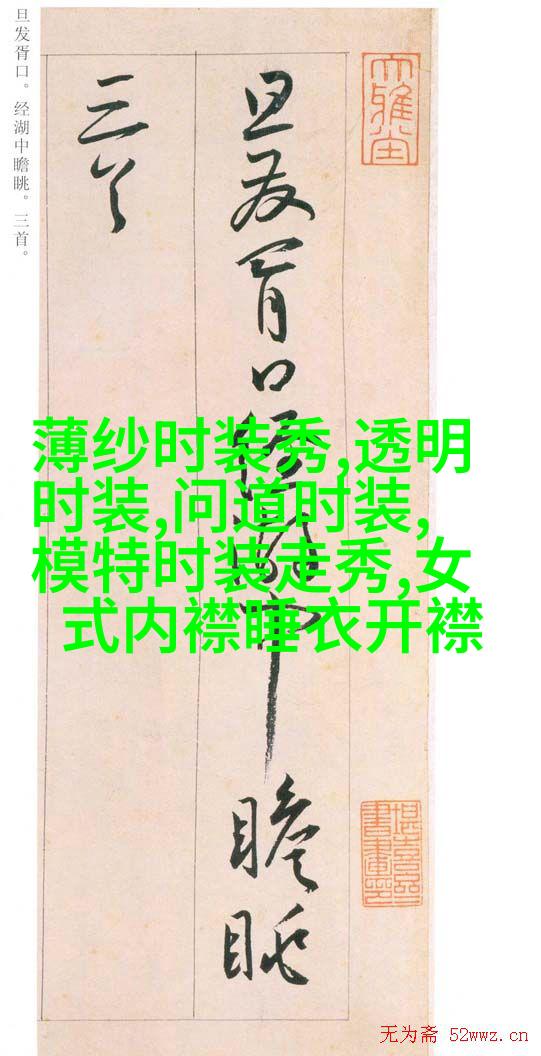 旦发胥口。经湖中瞻眺。三首。
旦发胥口经湖中瞻眺
三首
大雅堂
薄纱时装秀,透明
时装,问道时装,
模特时装走秀,女
式内襟睡衣开襟
无为斋 52wwz.cn